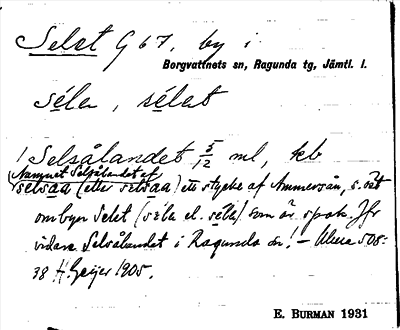 Selet G 67, by i
Borgvattnets sn, Ragunda tg, Jämtl. l.
séla, sélat
1 Selsålandet 5/12 ml, kb
Namnet Selsålandet af
selsåa (eller selsåa) ett stycke af Ammerån, s. öst
om byn Selet (séla el. sella) som är spåk. Jfr
vidare Selsålandet i Ragunda sn! – Ahua 508:
38 H Geijer 1905.
E. BURMAN 1931